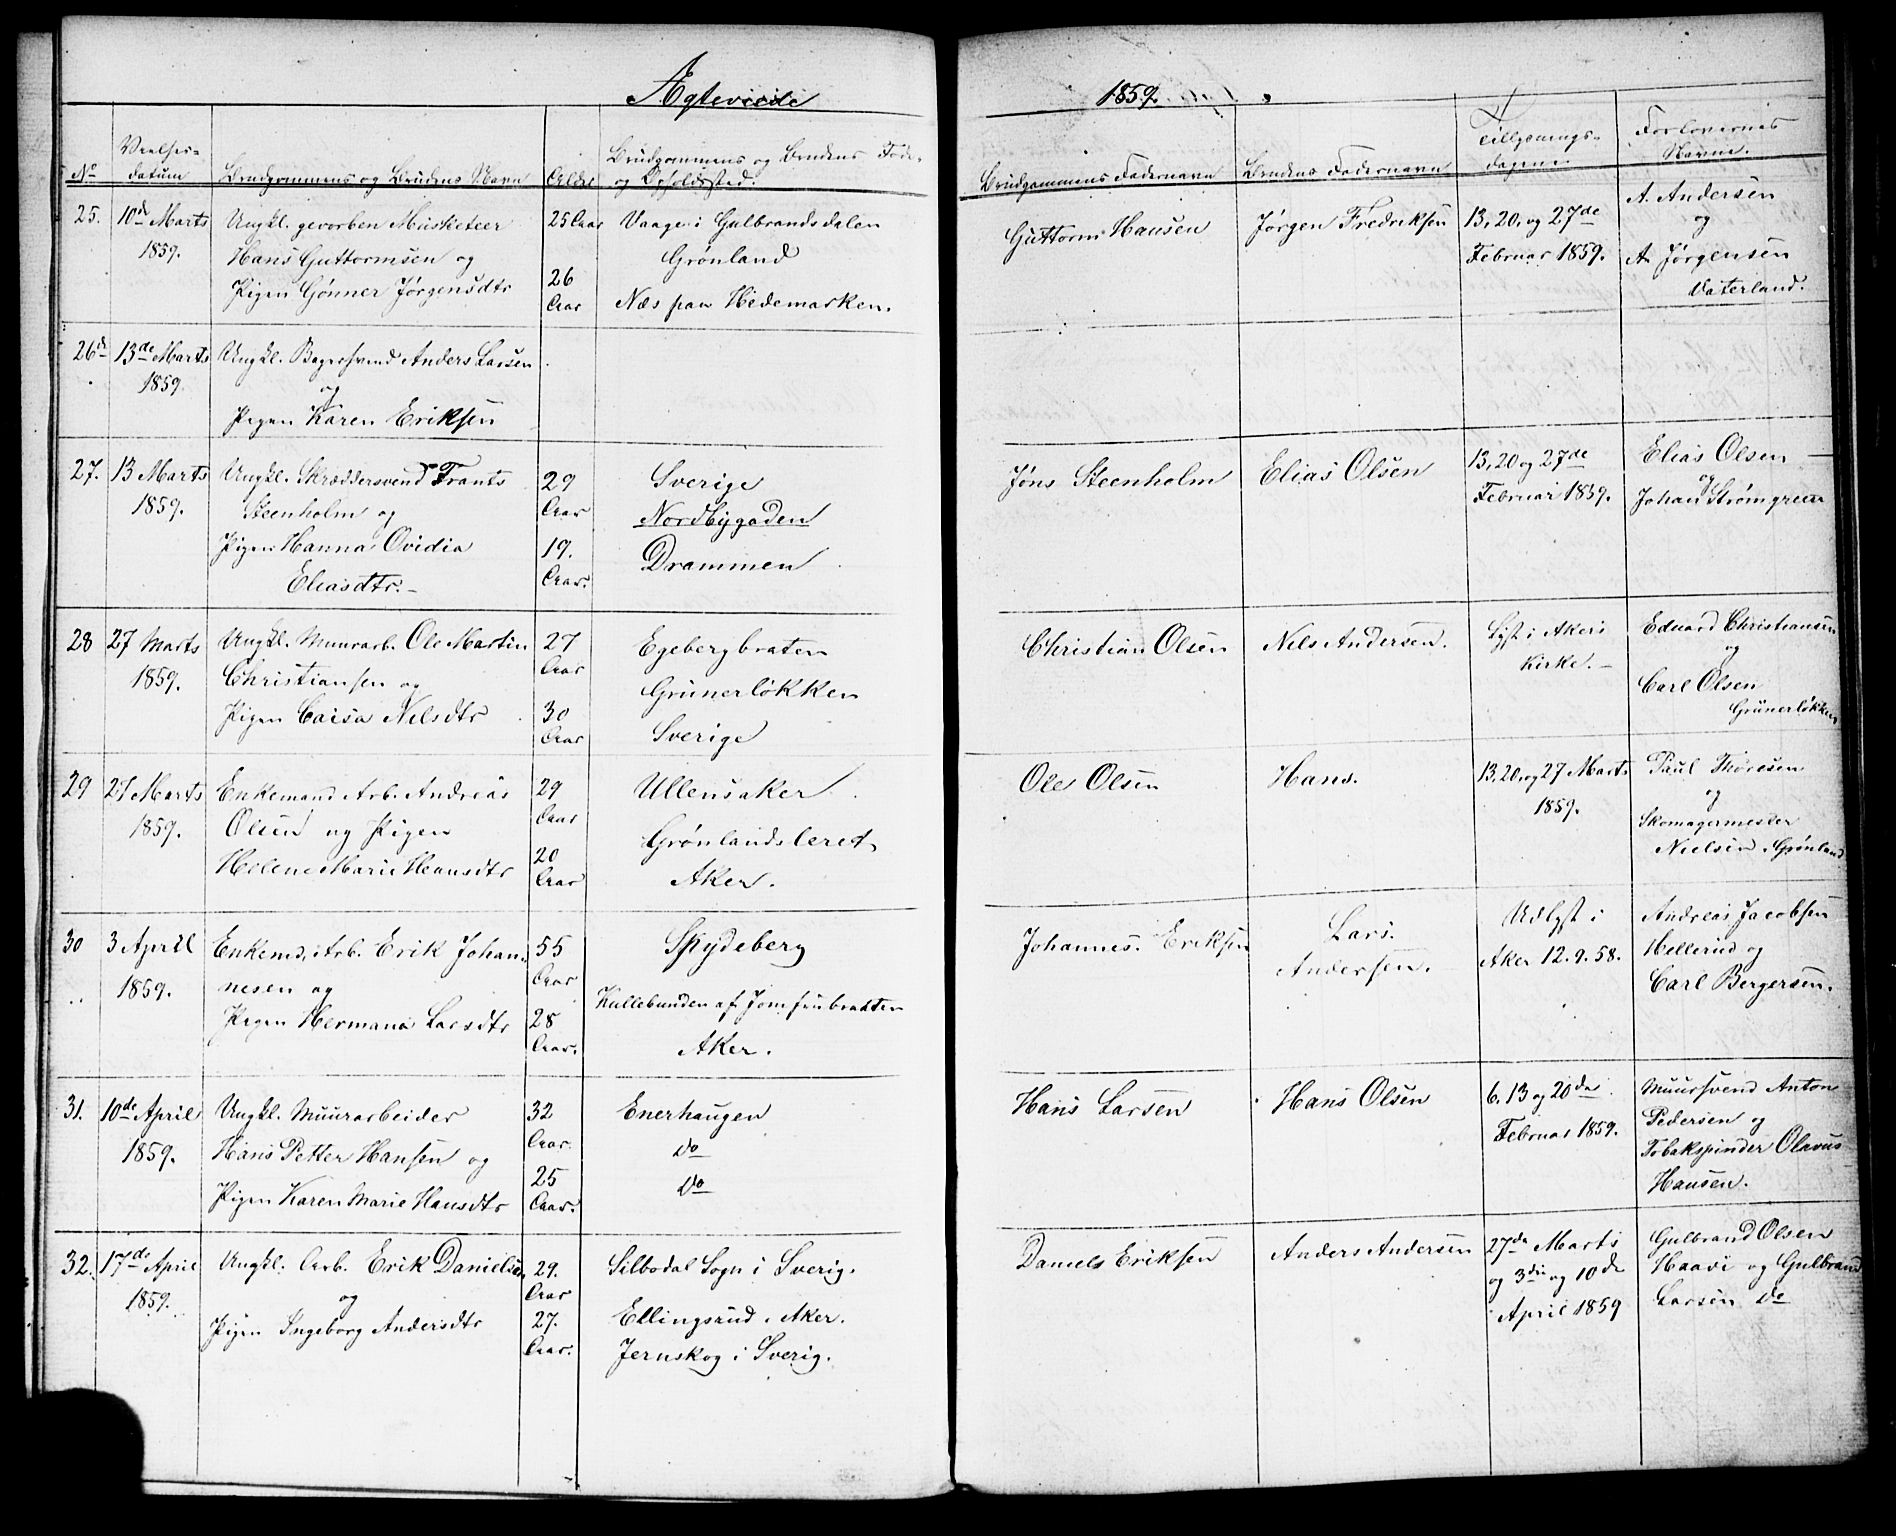 Ægteviede
1859.
No
Vielses-
datum
Brudgommens og Brudens Navn
Alder
Brudgommens og Brudens Føde-
og Opholdssted.
Brudgommens Fadernavn
Brudens Fadernavn
Tillysnings-
dagene
Forlovernes
Navne.
25.
10de Marts
1859.
Ungkl. gevorben Musketeer
Hans Guttormsen og
Pigen Gønner Jørgensdtr
25 Aar
26
Aar
Vaage i Gulbrandsdalen
Grønland
Næs paa Hedemarken.
Guttorm Hansen
Jørgen Fredriksen
13, 20, og 27de
Februar 1859.
A. Andersen
og
A. Jørgensen
Vaterland.
26d
13de Marts
1859.
Ungkl. Bagersvend Anders Larsen
og
Pigen Karen Eriksen
27.
13 Marts
1859.
Ungkl. Skræddersvend Frants
Steenholm og
Pigen Hanna Ovidia
Eliasdtr.-
29
Aar
19.
Aar.
Sverige
Nordbygaden
Drammen
Jøns Steenholm
Elias Olsen
13, 20 og 27de
Februar 1859.
Elias Olsen
og
Johan Strømgreen
28
27 Marts
1859.
Ungkl. Muurarb. Ole Martin
Christiansen og
Pigen Caisa Nilsdtr
27
Aar
30
Aar
Egebergbraten
Grünerløkken
Sverige
Christian Olsen
Nils Andersen.
Lyst i Akers
Kirke.-
Eduard Christiansen
og
Carl Olsen
Grünerløkken
29
27 Marts
1859.
Enkemand Arb. Andreas
Olsen og Pigen
Helene Marie Hansdtr
29
Aar
20
Aar
Ullensaker
Grønlandsleret
Aker.
Ole Olsen
Hans.
13, 20, og 27 Marts
1859.
Paul Thoresen
og
Skomagermester
Nielsen, Grønland
30
3 April
1859.
Enkemd, Arb. Erik Johan-
nesen og
Pigen Hermana Larsdtr
55
Aar
28
Aar.
Spydeberg
Kullebunden af Jomfrubraaten
Aker.
Johannes. Eriksen
Lars.
Andersen.
Udlyst i
Aker 12. 9. 58.
Andreas Jacobsen
Hellerud og
Carl Bergersen.
31.
10de April
1859.
Ungkl. Muurarbeider
Hans Petter Hansen og
Pigen Karen Marie Hansdtr
32
Aar
25
Aar.
Enerhaugen
do
do
Hans Larsen
Hans Olsen
6. 13 og 20de
Februar 1859.
Muursvend Anton
Pedersen og
Tobakspinder Olavus
Hansen.
32.
17de April
1859.
Ungkl. Arb. Erik Danielsen
og
Pigen Ingeborg Andersdtr
29.
Aar
27.
Aar.
Silbodal Sogn i Sverig.
Ellingsrud, Aker.
Jernskog i Sverig.
Daniels Eriksen
Anders Andersen
27de Marts
og 3die og 10de
April 1859
Gulbrand Olsen
Haavi og Gulbrand
Larsen do